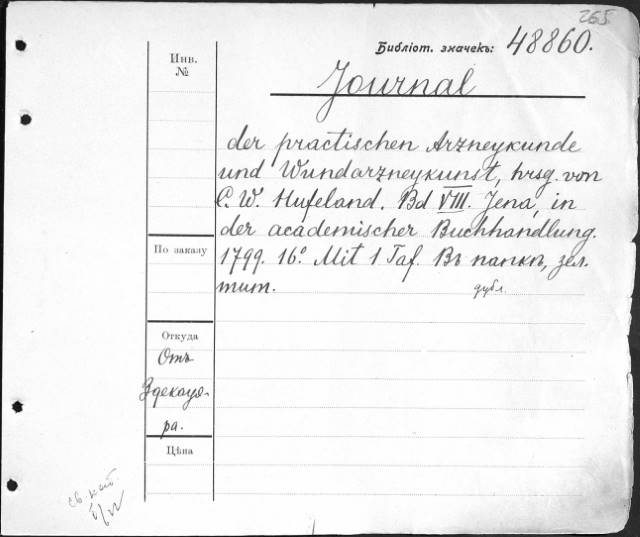 265.
Библіот. значекъ: 48860.
Инв.
№
Journal
der practischen Arzneykunde
und Wundarzneykunst, hrsg. von
C. W. Hufeland. Bd VIII. Jena, in
der academischer Buchhandlung.
1799. 16º. Mit 1 Taf. Въ папкѣ, зел.
тит.
дубл.
По заказу
Откуда
Отъ
Здекауе-
ра.
Цѣна
св. кат.